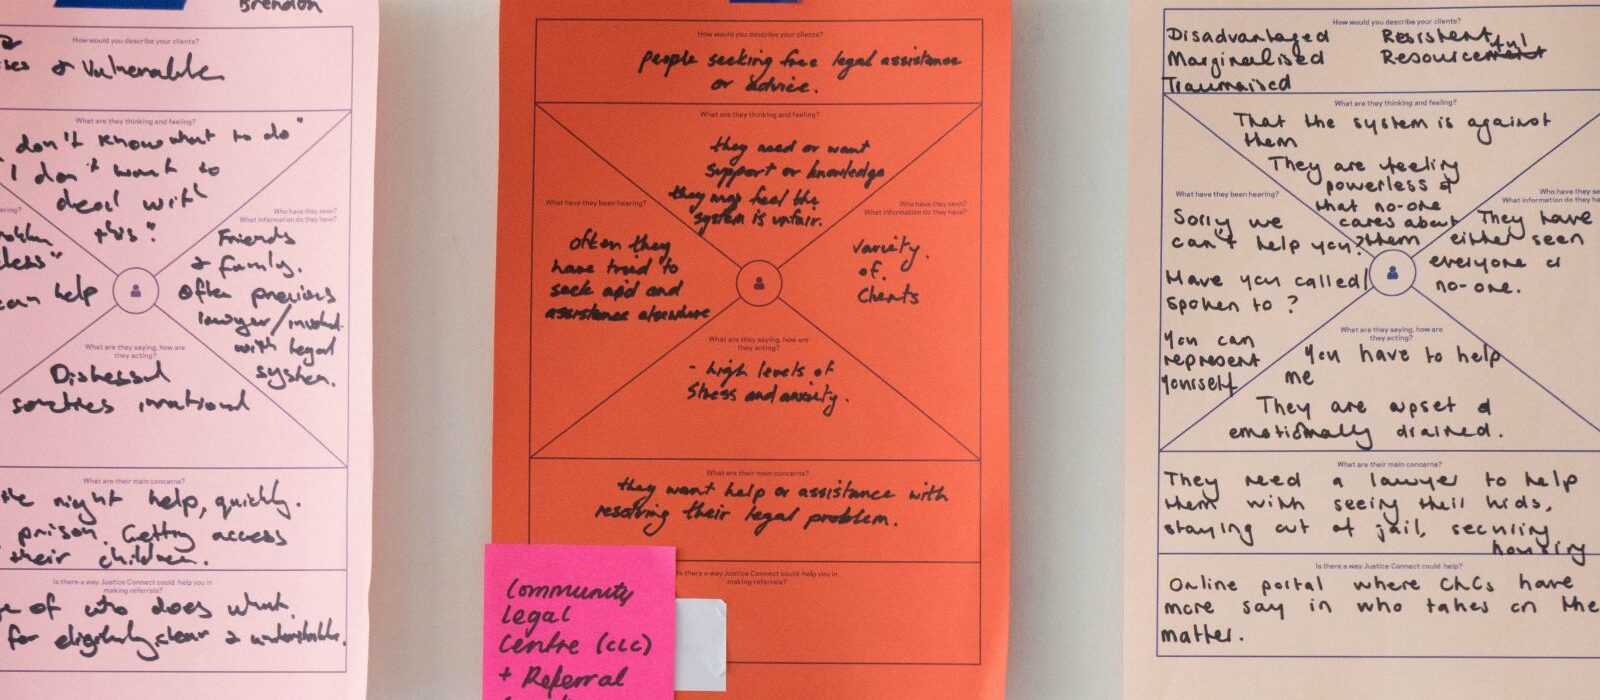 Brendon
How would you describe your clients?
& Vulnerable
What are they thinking and feeling?
don't know what to do"
I don't want to
deal with
this"
Who have they seen?
What information do they have?
Friends
& family.
Often previous
lawyer/involved
with legal
system.
less"
can help
What are they saying, how are
they acting?
Distressed
sometimes irrational
What are their main concerns?
the right help, quickly.
prison. Getting access
their children.
Is there a way Justice Connect could help you in
making referrals?
of who does what.
for eligibility, clear & understandable.
How would you describe your clients?
people seeking free legal assistance
or advice.
What are they thinking and feeling?
they need or want
support or knowledge
they may feel the
system is unfair.
What have they been hearing?
often they
have tried to
seek aid and
assistance elsewhere
Who have they seen?
What information do they have?
variety
of
clients
What are they saying, how are
they acting?
- high levels of
stress and anxiety.
What are their main concerns?
they want help or assistance with
resolving their legal problem.
Is there a way Justice Connect could help you in
making referrals?
Community
Legal
Centre (CLC)
+ Referral
How would you describe your clients?
Disadvantaged
Marginalised
Traumatised
Resistent
Resourceful
What are they thinking and feeling?
That the system is against
them
They are feeling
powerless &
that no-one
cares about
them
What have they been hearing?
Sorry we
can't help you?
Have you called/
spoken to?
You can
represent
yourself
Who have they seen?
What information do they have?
They have
either seen
everyone or
no-one.
What are they saying, how are
they acting?
You have to help
me
They are upset &
emotionally drained.
What are their main concerns?
They need a lawyer to help
them with seeing their kids,
staying out of jail, securing
housing
Is there a way Justice Connect could help?
Online portal where CLCs have
more say in who takes on the
matter.